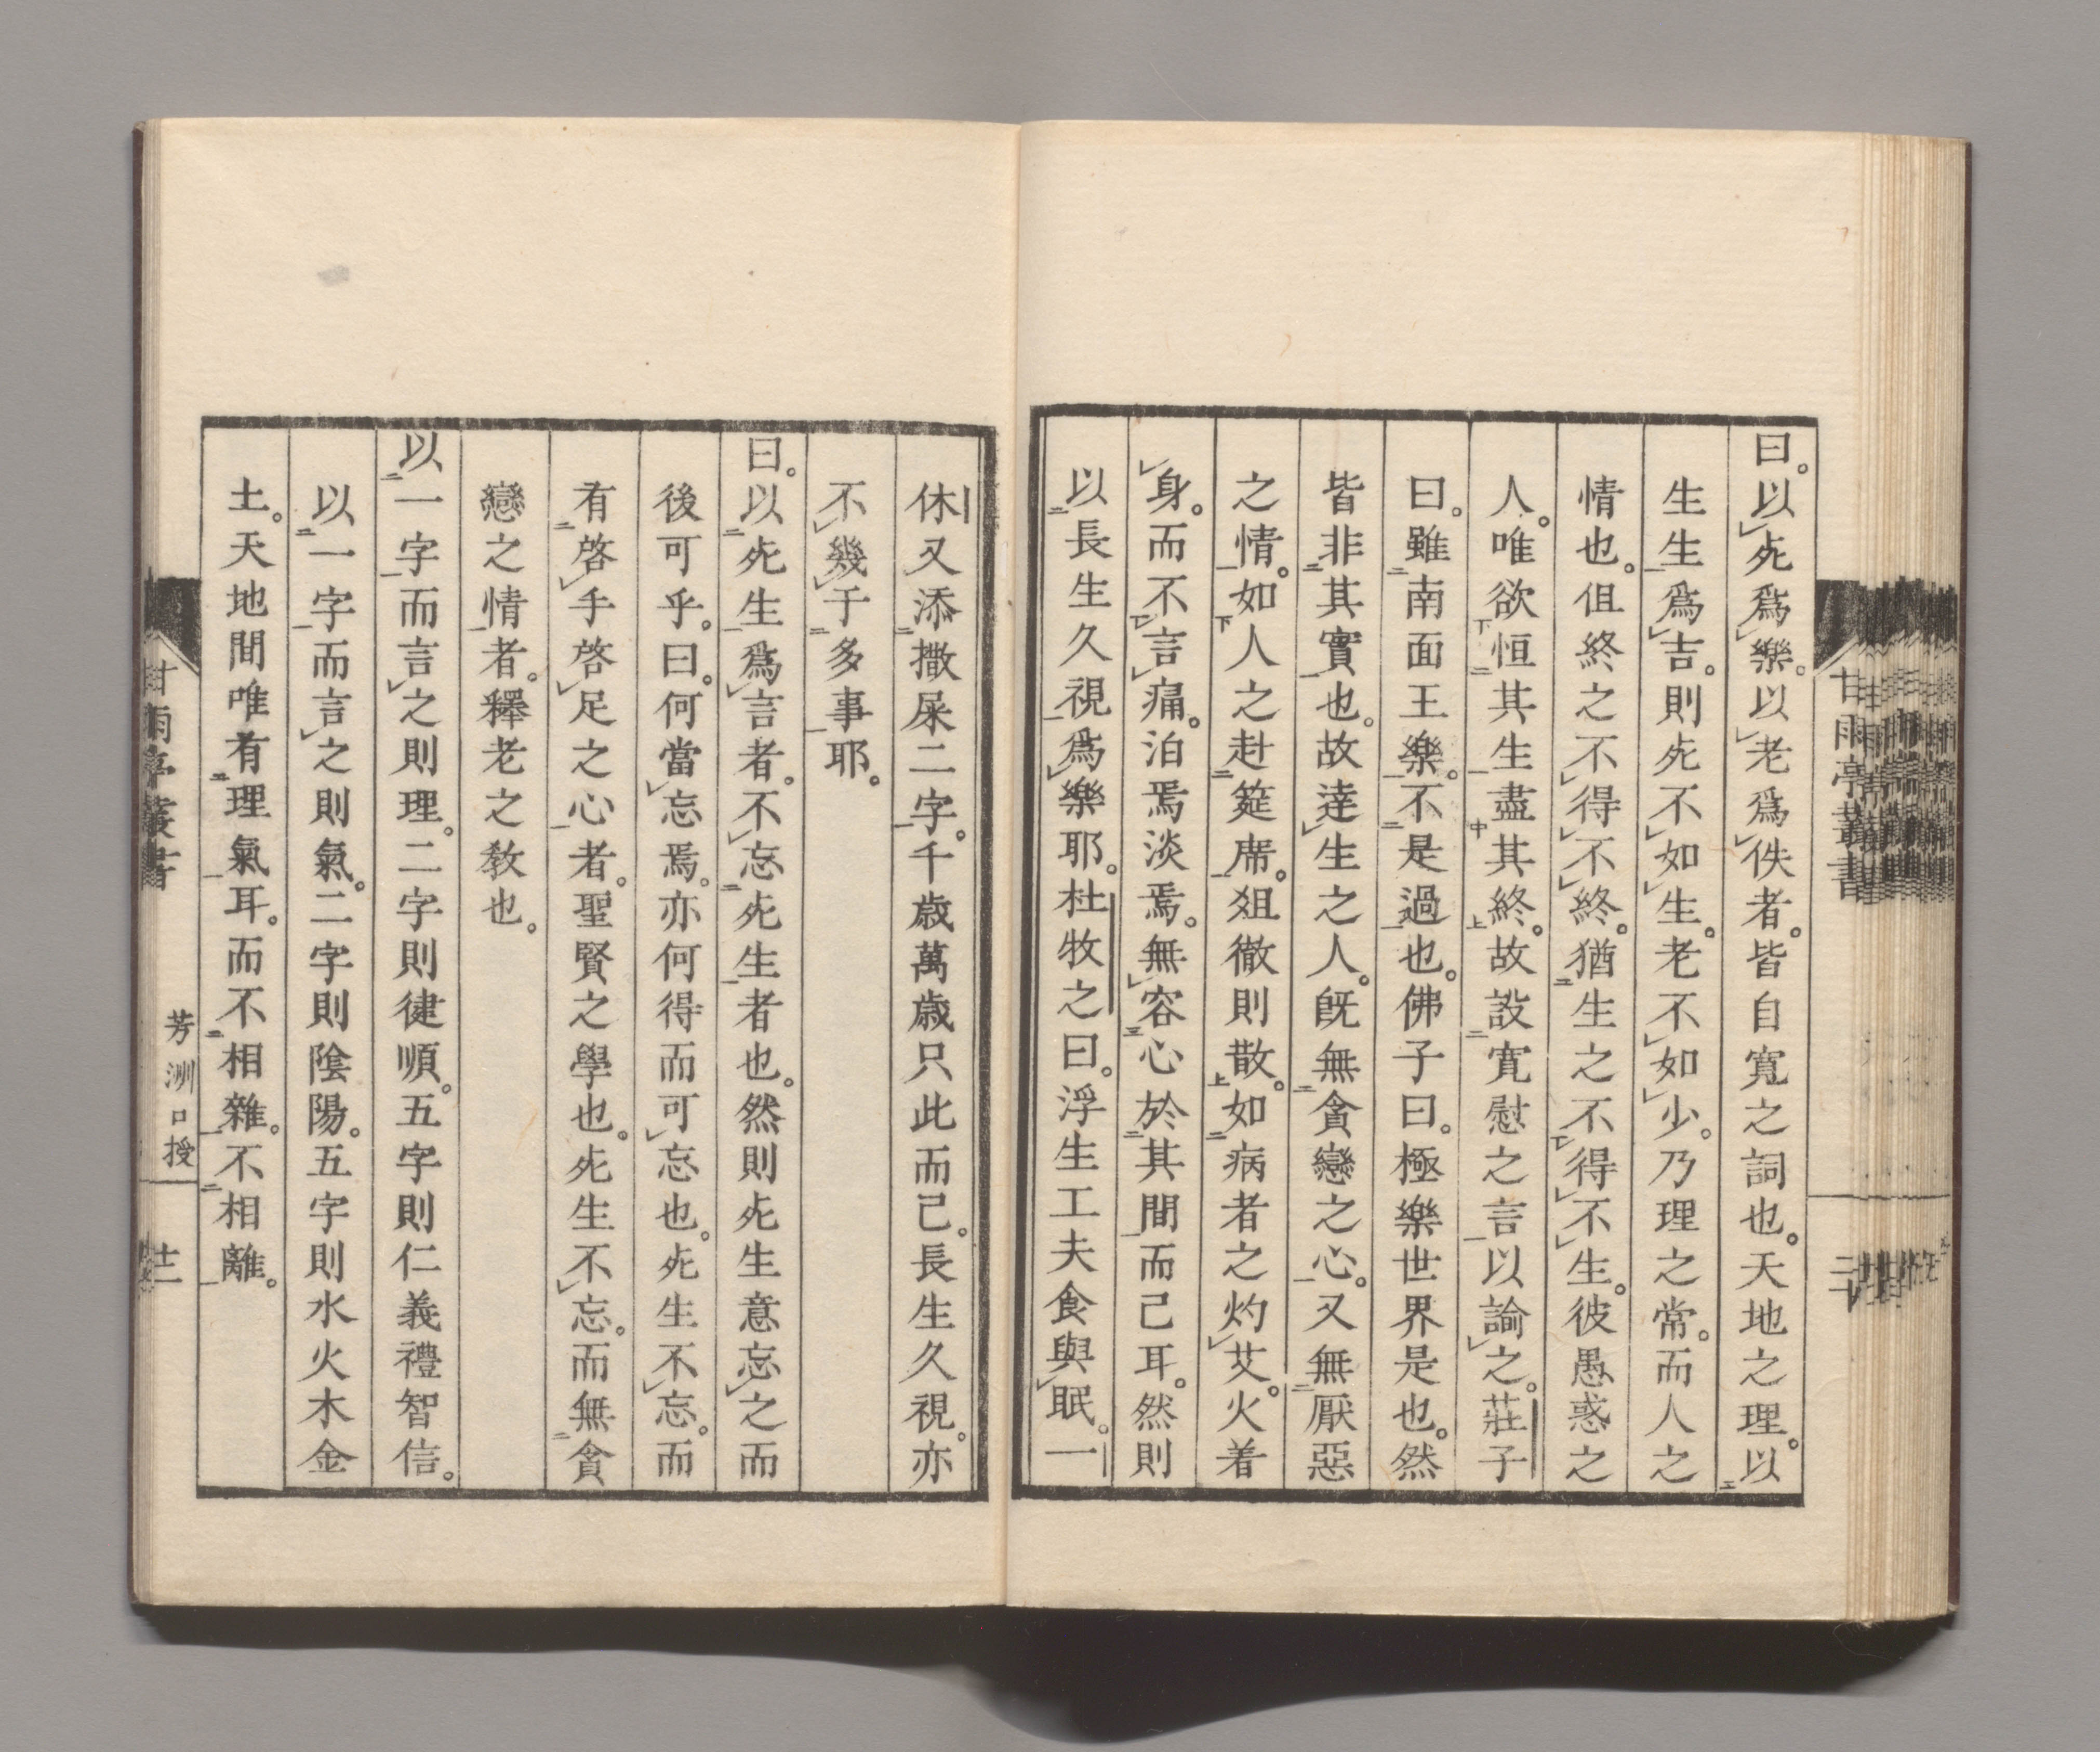 曰。以死爲樂。以老爲佚者。皆自寬之詞也。天地之理。以
生生爲吉。則死不如生。老不如少。乃理之常。而人之
情也。但終之不得不終。猶生之不得不生。彼愚惑之
人。唯欲恒其生盡其終。故設寬慰之言以諭之。莊子
曰。雖南面王樂。不是過也。佛子曰。極樂世界是也。然
皆非其實也。故達生之人。既無貪戀之心。又無厭惡
之情。如人之赴筵席。俎徹則散。如病者之灼艾。火着
身。而不言痛。泊焉淡焉。無容心於其間而已耳。然則
以長生久視爲樂耶。杜牧之曰。浮生工夫食與眠。一
休又添撒屎二字。千歲萬歲只此而已。長生久視。亦
不幾于多事耶。
曰。以死生爲言者。不忘死生者也。然則死生意忘之而
後可乎。曰。何當忘焉。亦何得而可忘也。死生不忘。而
有啓手啓足之心者。聖賢之學也。死生不忘。而無貪
戀之情者。釋老之敎也。
以一字而言之則理。二字則健順。五字則仁義禮智信。
以一字而言之則氣。二字則陰陽。五字則水火木金
土。天地間唯有理氣耳。而不相雜。不相離。
甘雨亭叢書
芳洲口授
十二
甘雨亭叢書